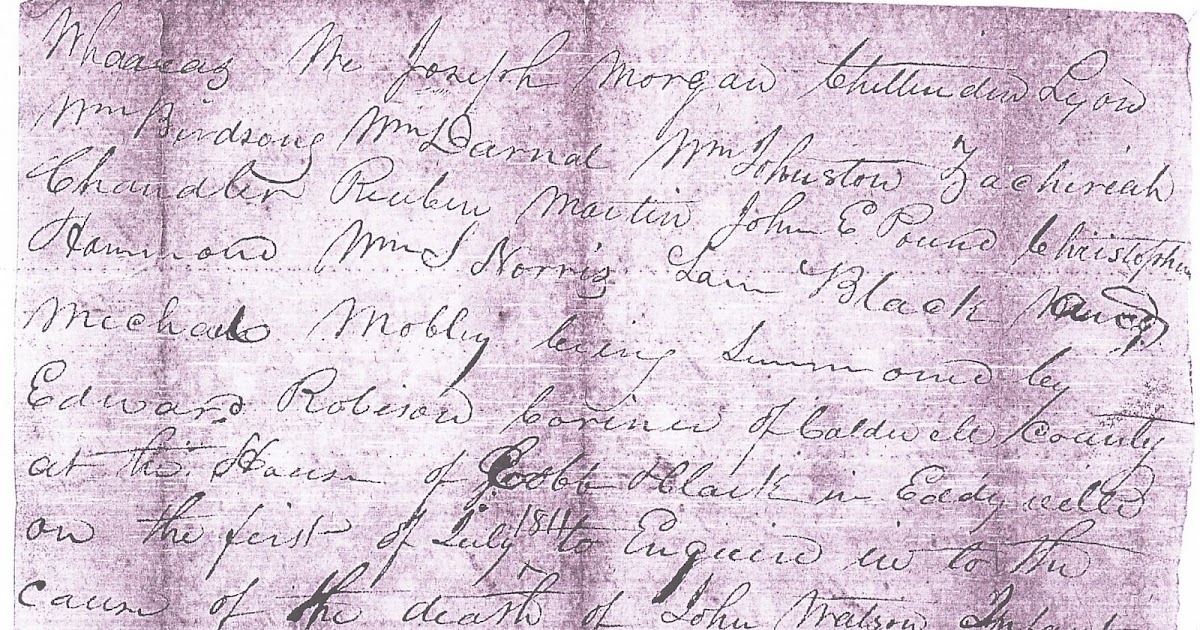 Whaareas We Joseph Morgan Chittenden Lyon
Wm Birdsong Wm Darnal Wm Johnston Zachiriah
Chandler Reuben Martin John E Pound Christopher
Hammond Wm S Norris Sam Black and
Michael Mobley being Summoned by
Edward Robison Coriner of Caldwell County
at the House of Black in Eddyville
on the first of July 1811 to Enquire in to the
cause of the death of John Watson